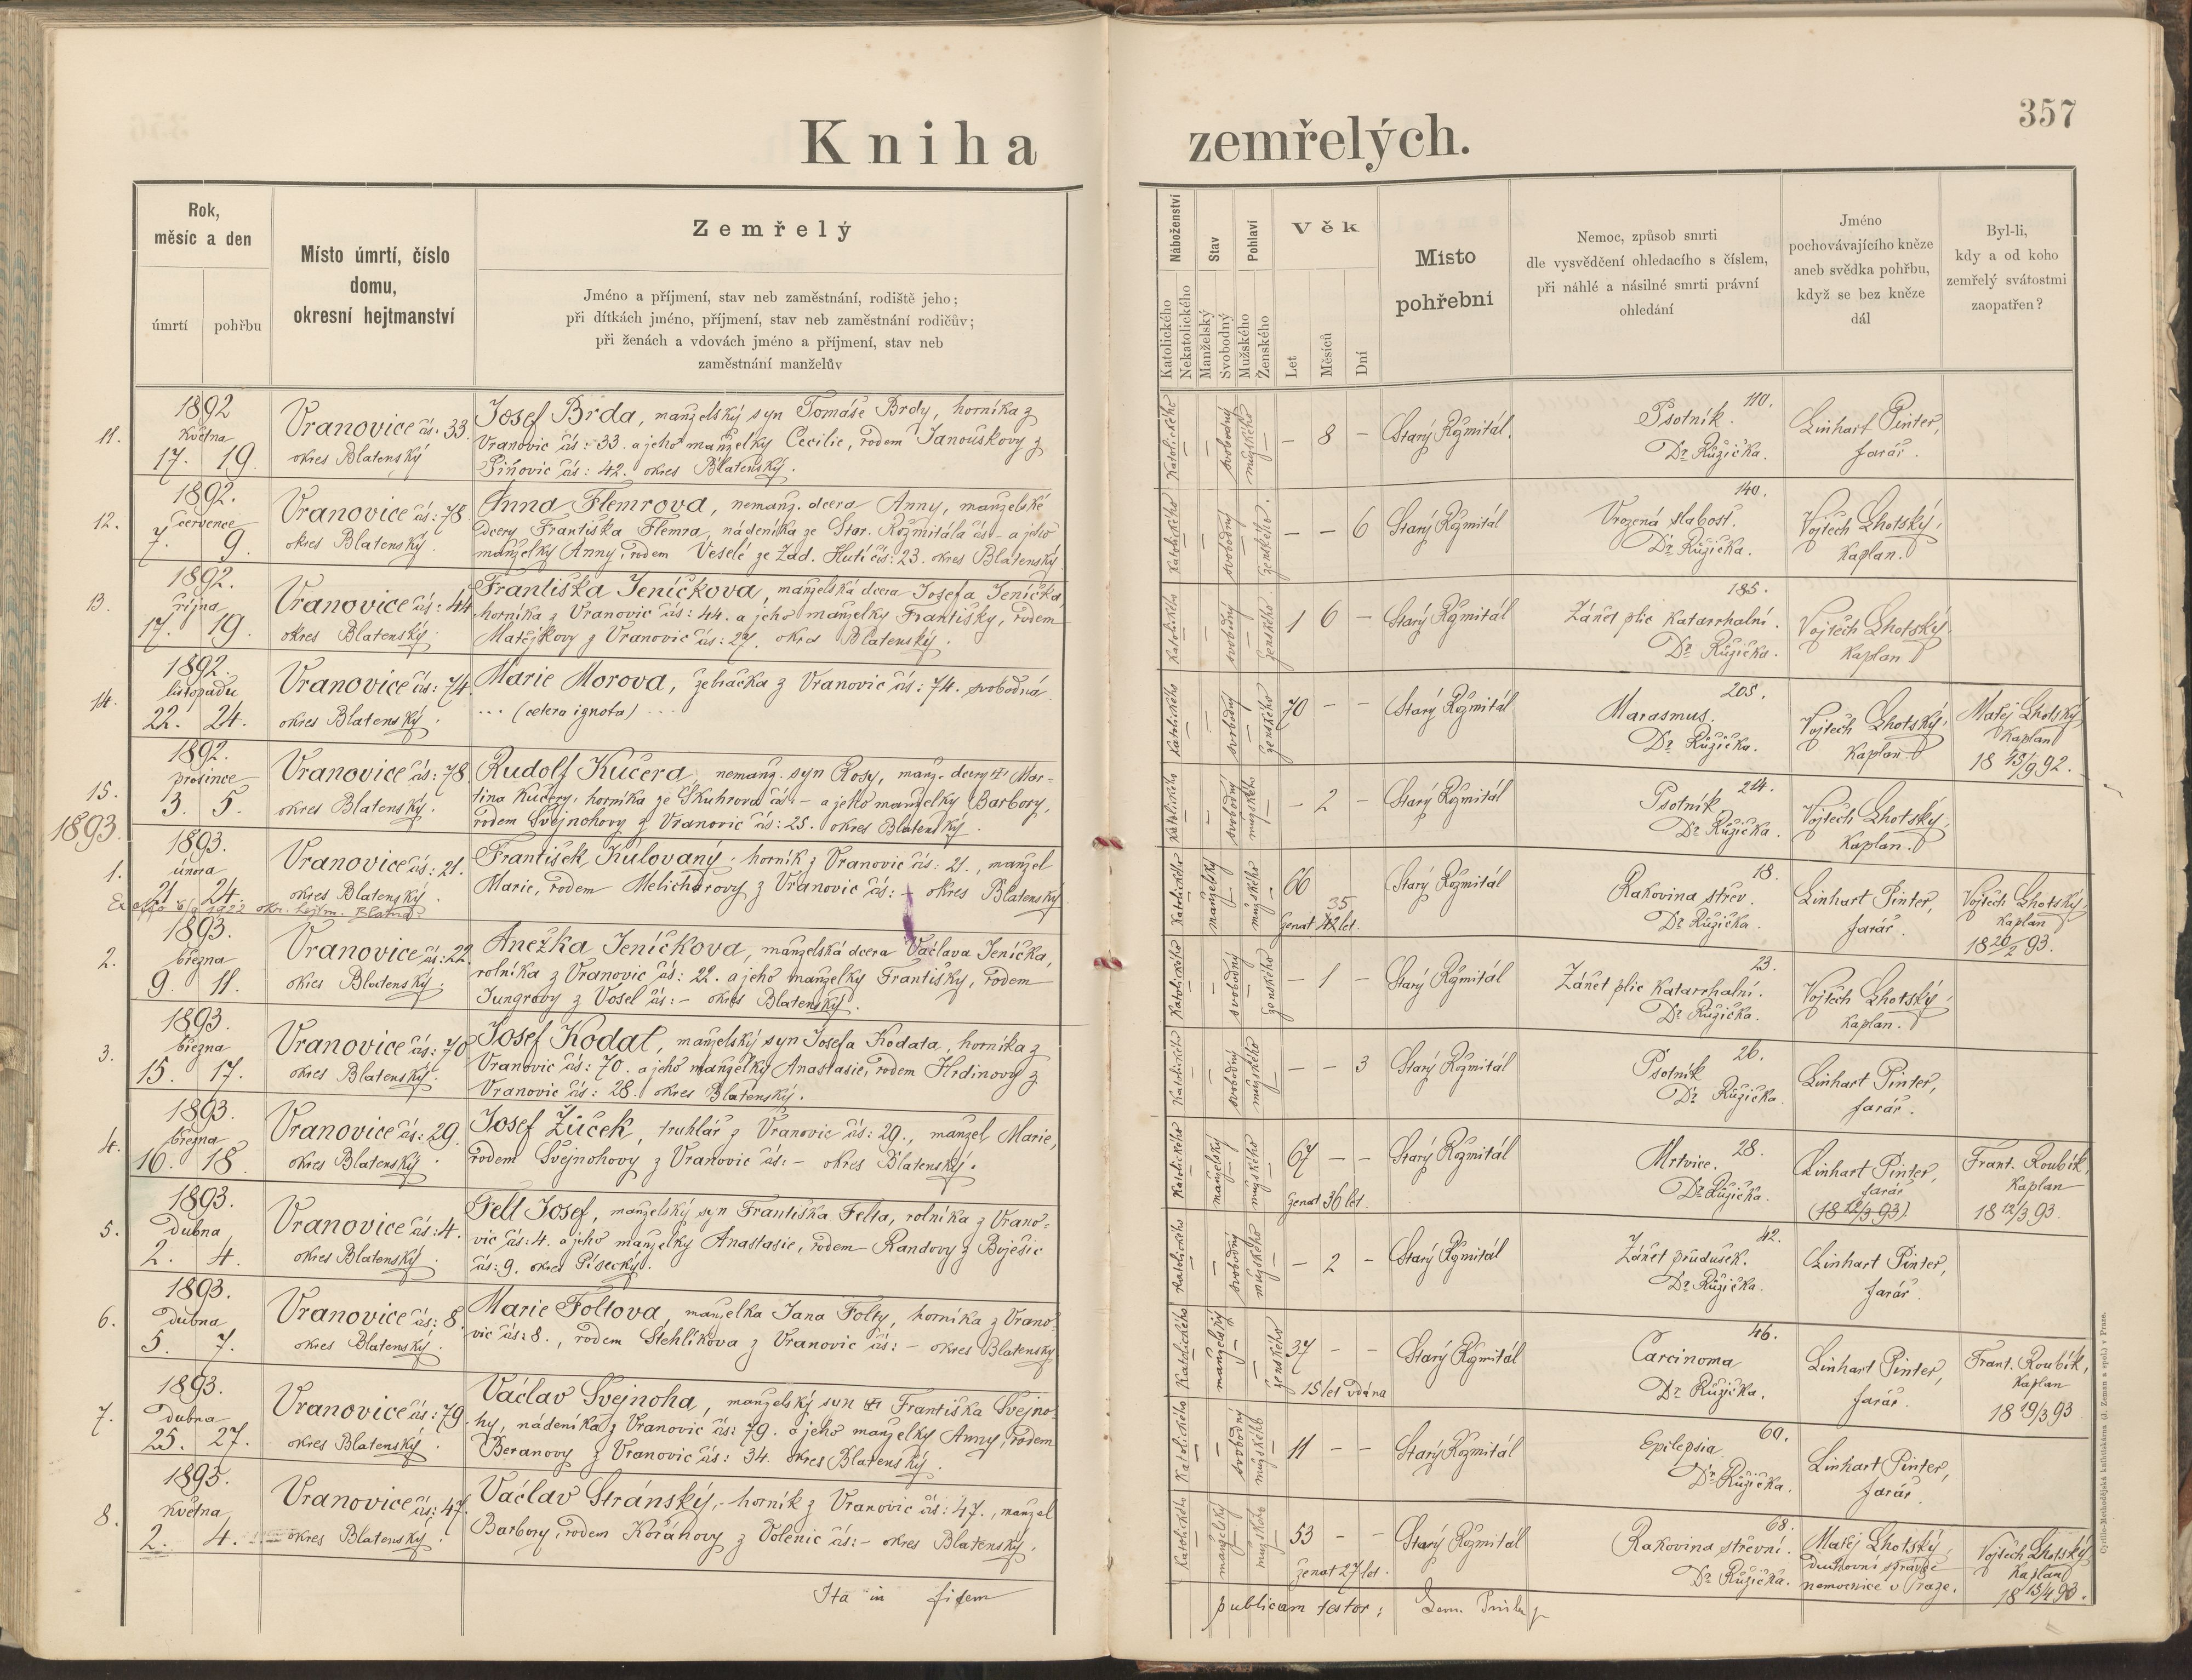 357
Kniha zemřelých.
Rok,
měsíc a den
úmrtí
pohřbu
Místo úmrtí, číslo
domu,
okresní hejtmanství
Zemřelý
Jméno a příjmení, stav neb zaměstnání, rodiště jeho;
při dítkách jméno, příjmení, stav neb zaměstnání rodičův;
při ženách a vdovách jméno a příjmení, stav neb
zaměstnání manželův
Náboženství
Katolického
Nekatolického
Stav
Manželský
Svobodný
Pohlaví
Mužského
Ženského
Věk
Let
Měsíců
Dní
Místo
pohřební
Nemoc, způsob smrti
dle vysvědčení ohledacího s číslem,
při náhlé a násilné smrti právní
ohledání
Jméno
pochovávajícího kněze
aneb svědka pohřbu,
když se bez kněze
dál
Byl-li,
kdy a od koho
zemřelý svátostmi
zaopatřen?
11.
1892
května
17. 19.
Vranovice čís: 33.
okres Blatenský
Josef Brda, manželský syn Tomáše Brdy, horníka z
Vranovic čís: 33. a jeho manželky Cecilie, rodem Janouškovy z
Piňovic čís: 42. okres Blatenský.
Katolického
svobodný
mužského
– 8 –
Starý Rožmitál.
110.
Psotník.
Dr Růžička.
Linhart Pinter,
farář.
12.
1892.
července
7. 9.
Vranovice čís: 78
okres Blatenský.
Anna Flemrova, nemanž. dcera Anny, manželské
dcery Františka Flemra, nádeníka ze Star. Rožmitála čís – a jeho
manželky Anny, rodem Veselé ze Zad. Hutí čís: 23. okres Blatenský.
Katolického
svobodný
ženského.
– – 6
Starý Rožmitál
140.
Vrozená slabost.
Dr Růžička.
Vojtěch Lhotský,
kaplan.
13.
1892.
října
17. 19.
Vranovice čís: 44
okres Blatenský.
Františka Jeníčkova, manželská dcera Josefa Jeníčka,
horníka z Vranovic čís: 44. a jeho manželky Františky, rodem
Matějkovy z Vranovic čís: 27. okres Blatenský.
Katolického
svobodný
ženského.
1 6 –
Starý Rožmitál
185.
Zánět plic katarrhalní.
Dr Růžička.
Vojtěch Lhotský,
kaplan
14.
1892.
listopadu
22. 24.
Vranovice čís: 74.
okres Blatenský.
Marie Morova, žebračka z Vranovic čís: 74. svobodná
... (cetera ignota) ...
Katolického
svobodný
ženského
70 – –
Starý Rožmitál
205.
Marasmus.
Dr Růžička.
Vojtěch Lhotský,
kaplan.
Matěj Lhotský
kaplan
18 15/9 92.
15.
1892.
prosince
3. 5.
Vranovice čís: 78.
okres Blatenský.
Rudolf Kučera, nemanž. syn Rosy, manž. dcery Mar-
tina Kučery, horníka ze Skuhrova čís – a jeho manželky Barbory,
rodem Svejnohovy z Vranovic čís: 25. okres Blatenský.
Katolického
svobodný
mužského
– 2 –
Starý Rožmitál
214.
Psotník
Dr Růžička.
Vojtěch Lhotský,
kaplan.
1893.
1.
1893.
února
21 24.
Vranovice čís: 21.
okres Blatenský.
1922 okr. hejtm. Blatná
František Kulovaný, horník z Vranovic čís: 21., manžel
Marie, rodem Melicharovy z Vranovic čís: – okres Blatenský
Katolického
manželský
mužského
66
35
ženat 42 let.
Starý Rožmitál
18.
Rakovina střev.
Dr Růžička.
Linhart Pinter,
farář.
Vojtěch Lhotský,
kaplan
18 20/2 93.
2.
1893.
března
9. 11.
Vranovice čís: 22.
okres Blatenský.
Anežka Jeníčkova, manželská dcera Václava Jeníčka,
rolníka z Vranovic čís: 22. a jeho manželky Františky, rodem
Jungrovy z Vosel čís: – okres Blatenský.
Katolického
svobodný
ženského
– 1 –
Starý Rožmitál
23.
Zánět plic katarrhalní.
Dr Růžička.
Vojtěch Lhotský,
kaplan.
3.
1893.
března
15. 17.
Vranovice čís: 70
okres Blatenský.
Josef Kodat, manželský syn Josefa Kodata, horníka z
Vranovic čís: 70. a jeho manželky Anastasie, rodem Hrdinovy z
Vranovic čís: 28. okres Blatenský.
Katolického
svobodný
mužského
– – 3
Starý Rožmitál
26.
Psotník
Dr Růžička.
Linhart Pinter,
farář.
4.
1893.
března
16. 18.
Vranovice čís: 29.
okres Blatenský.
Josef Žůček, truhlář z Vranovic čís: 29., manžel Marie,
rodem Svejnohovy z Vranovic čís: – okres Blatenský.
Katolického
manželský
mužského
67 – –
ženat 36 let.
Starý Rožmitál
28.
Mrtvice.
Dr Růžička.
Linhart Pinter,
farář
(18 12/3 93).
Frant. Roubík,
kaplan
18 12/3 93
5.
1893.
dubna
2. 4.
Vranovice čís: 4.
okres Blatenský.
Felt Josef, manželský syn Františka Felta, rolníka z Vrano-
vic čís: 4. a jeho manželky Anastasie, rodem Randovy z Boješic
čís: 9. okres Písecký.
Katolického
svobodný
mužského
– 2 –
Starý Rožmitál
42.
Zánět průdušek.
Dr Růžička.
Linhart Pinter,
farář.
6.
1893.
dubna
5. 7.
Vranovice čís: 8.
okres Blatenský.
Marie Foltova, manželka Jana Folty, horníka z Vrano-
vic čís: 8., rodem Stehlíkova z Vranovic čís: – okres Blatenský
Katolického
manželský
ženského
37 – –
15 let vdána
Starý Rožmitál
46.
Carcinoma
Dr Růžička.
Linhart Pinter,
farář.
Frant. Roubík,
kaplan
18 19/3 93
7.
1893.
dubna
25. 27.
Vranovice čís: 79.
okres Blatenský.
Václav Svejnoha, manželský syn Františka Svejno-
hy, nádeníka z Vranovic čís: 79. a jeho manželky Anny, rodem
Beranovy z Vranovic čís: 34. okres Blatenský.
Katolického
svobodný
mužského
11 – –
Starý Rožmitál
60.
Epilepsia
Dr Růžička.
Linhart Pinter,
farář.
8.
1893.
května
2. 4.
Vranovice čís: 47.
okres Blatenský.
Václav Stránský, horník z Vranovic čís: 47., manžel
Barbory, rodem Koráhovy z Volenic čís: – okres Blatenský.
Katolického
manželský
mužského
53 – –
ženat 27 let.
Starý Rožmitál
68.
Rakovina střevní.
Dr Růžička.
Matěj Lhotský,
duchovní správce
nemocnice v Praze.
Vojtěch Lhotský
kaplan
18 15/4 93.
Ita in fidem publicam testor:
Cyrillo-Methodějská knihtiskárna (J. Zeman a spol.) v Praze.